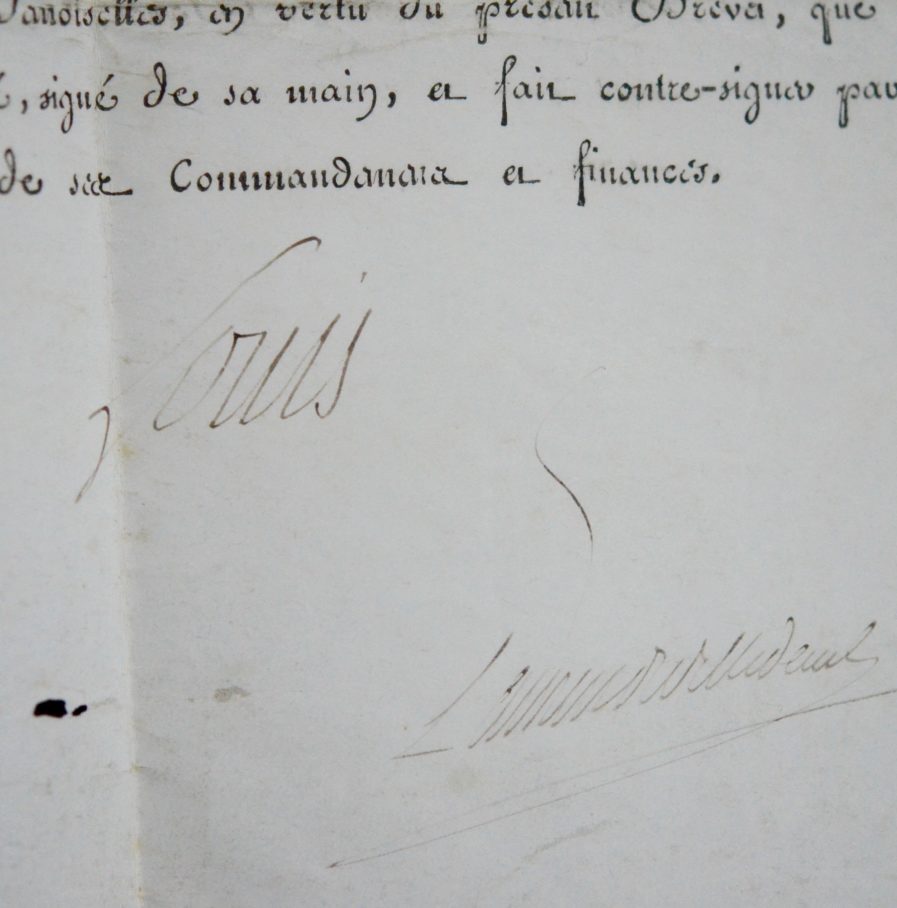 Damoiselles, en vertu du présent Brevet, que
é, signé de sa main, et fait contre-signer par
de ses Commandemens et finances.
Louis